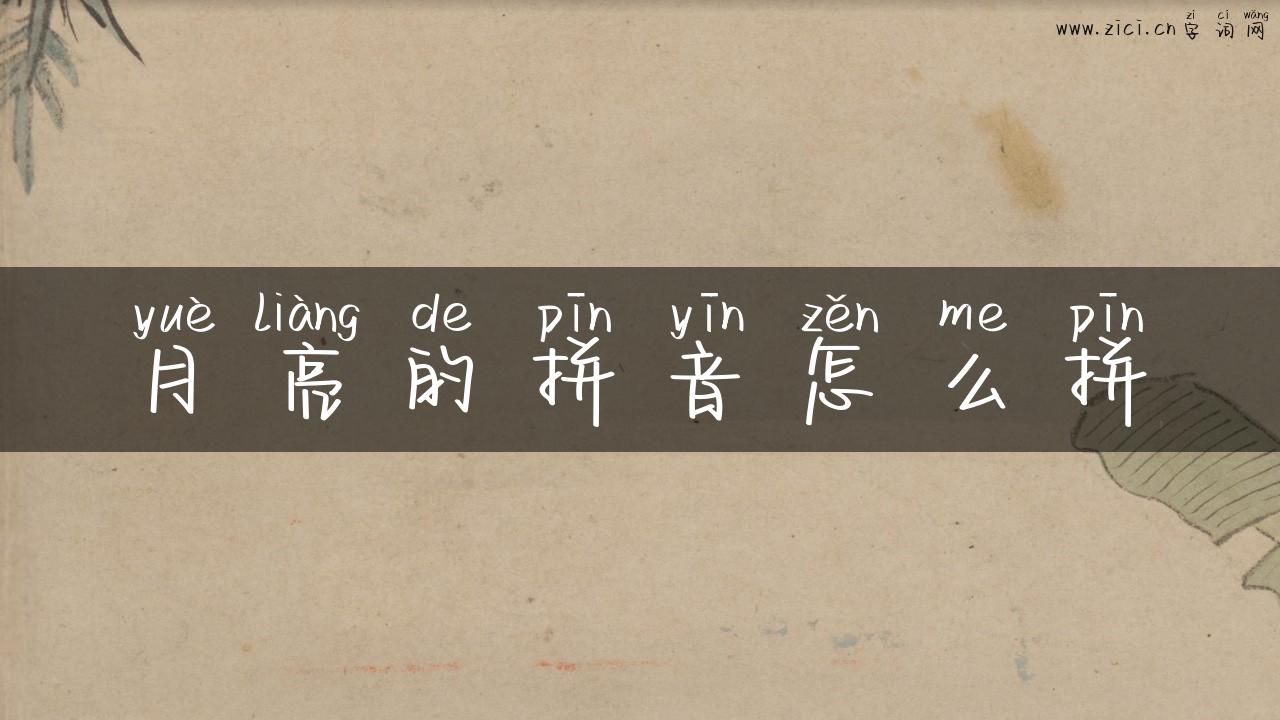 zì cí wǎng
www.zici.cn 字 词 网
yuè liàng de pīn yīn zěn me pīn
月 亮 的 拼 音 怎 么 拼